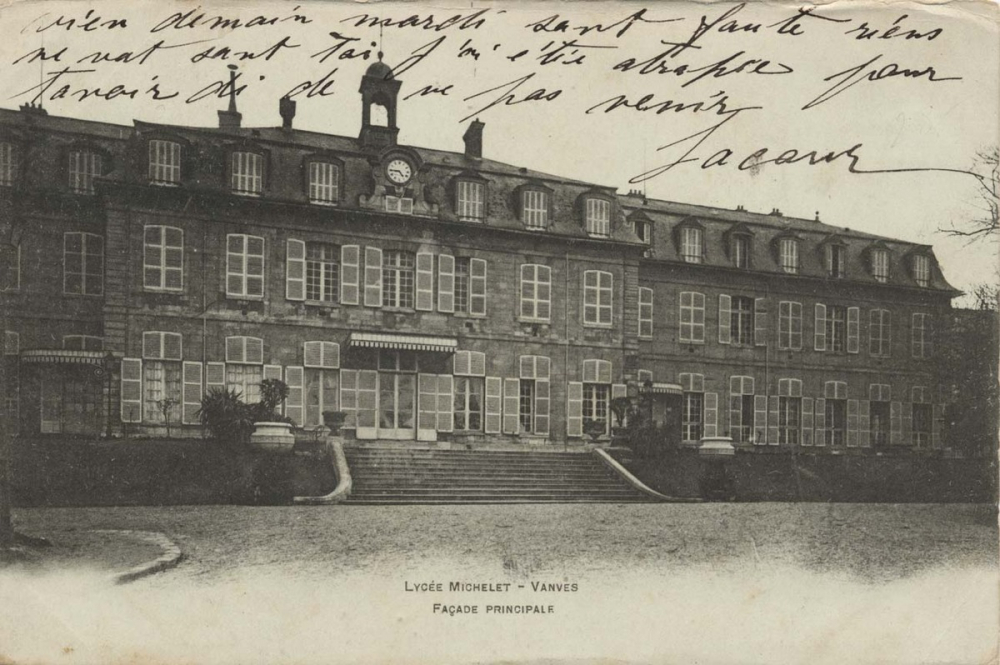 vien demain mardi sant faute riens
ne vat sant Toi j'ai étée atrapée pour
t'avoir di de ne pas venir
Lacour
LYCÉE MICHELET - VANVES
FAÇADE PRINCIPALE